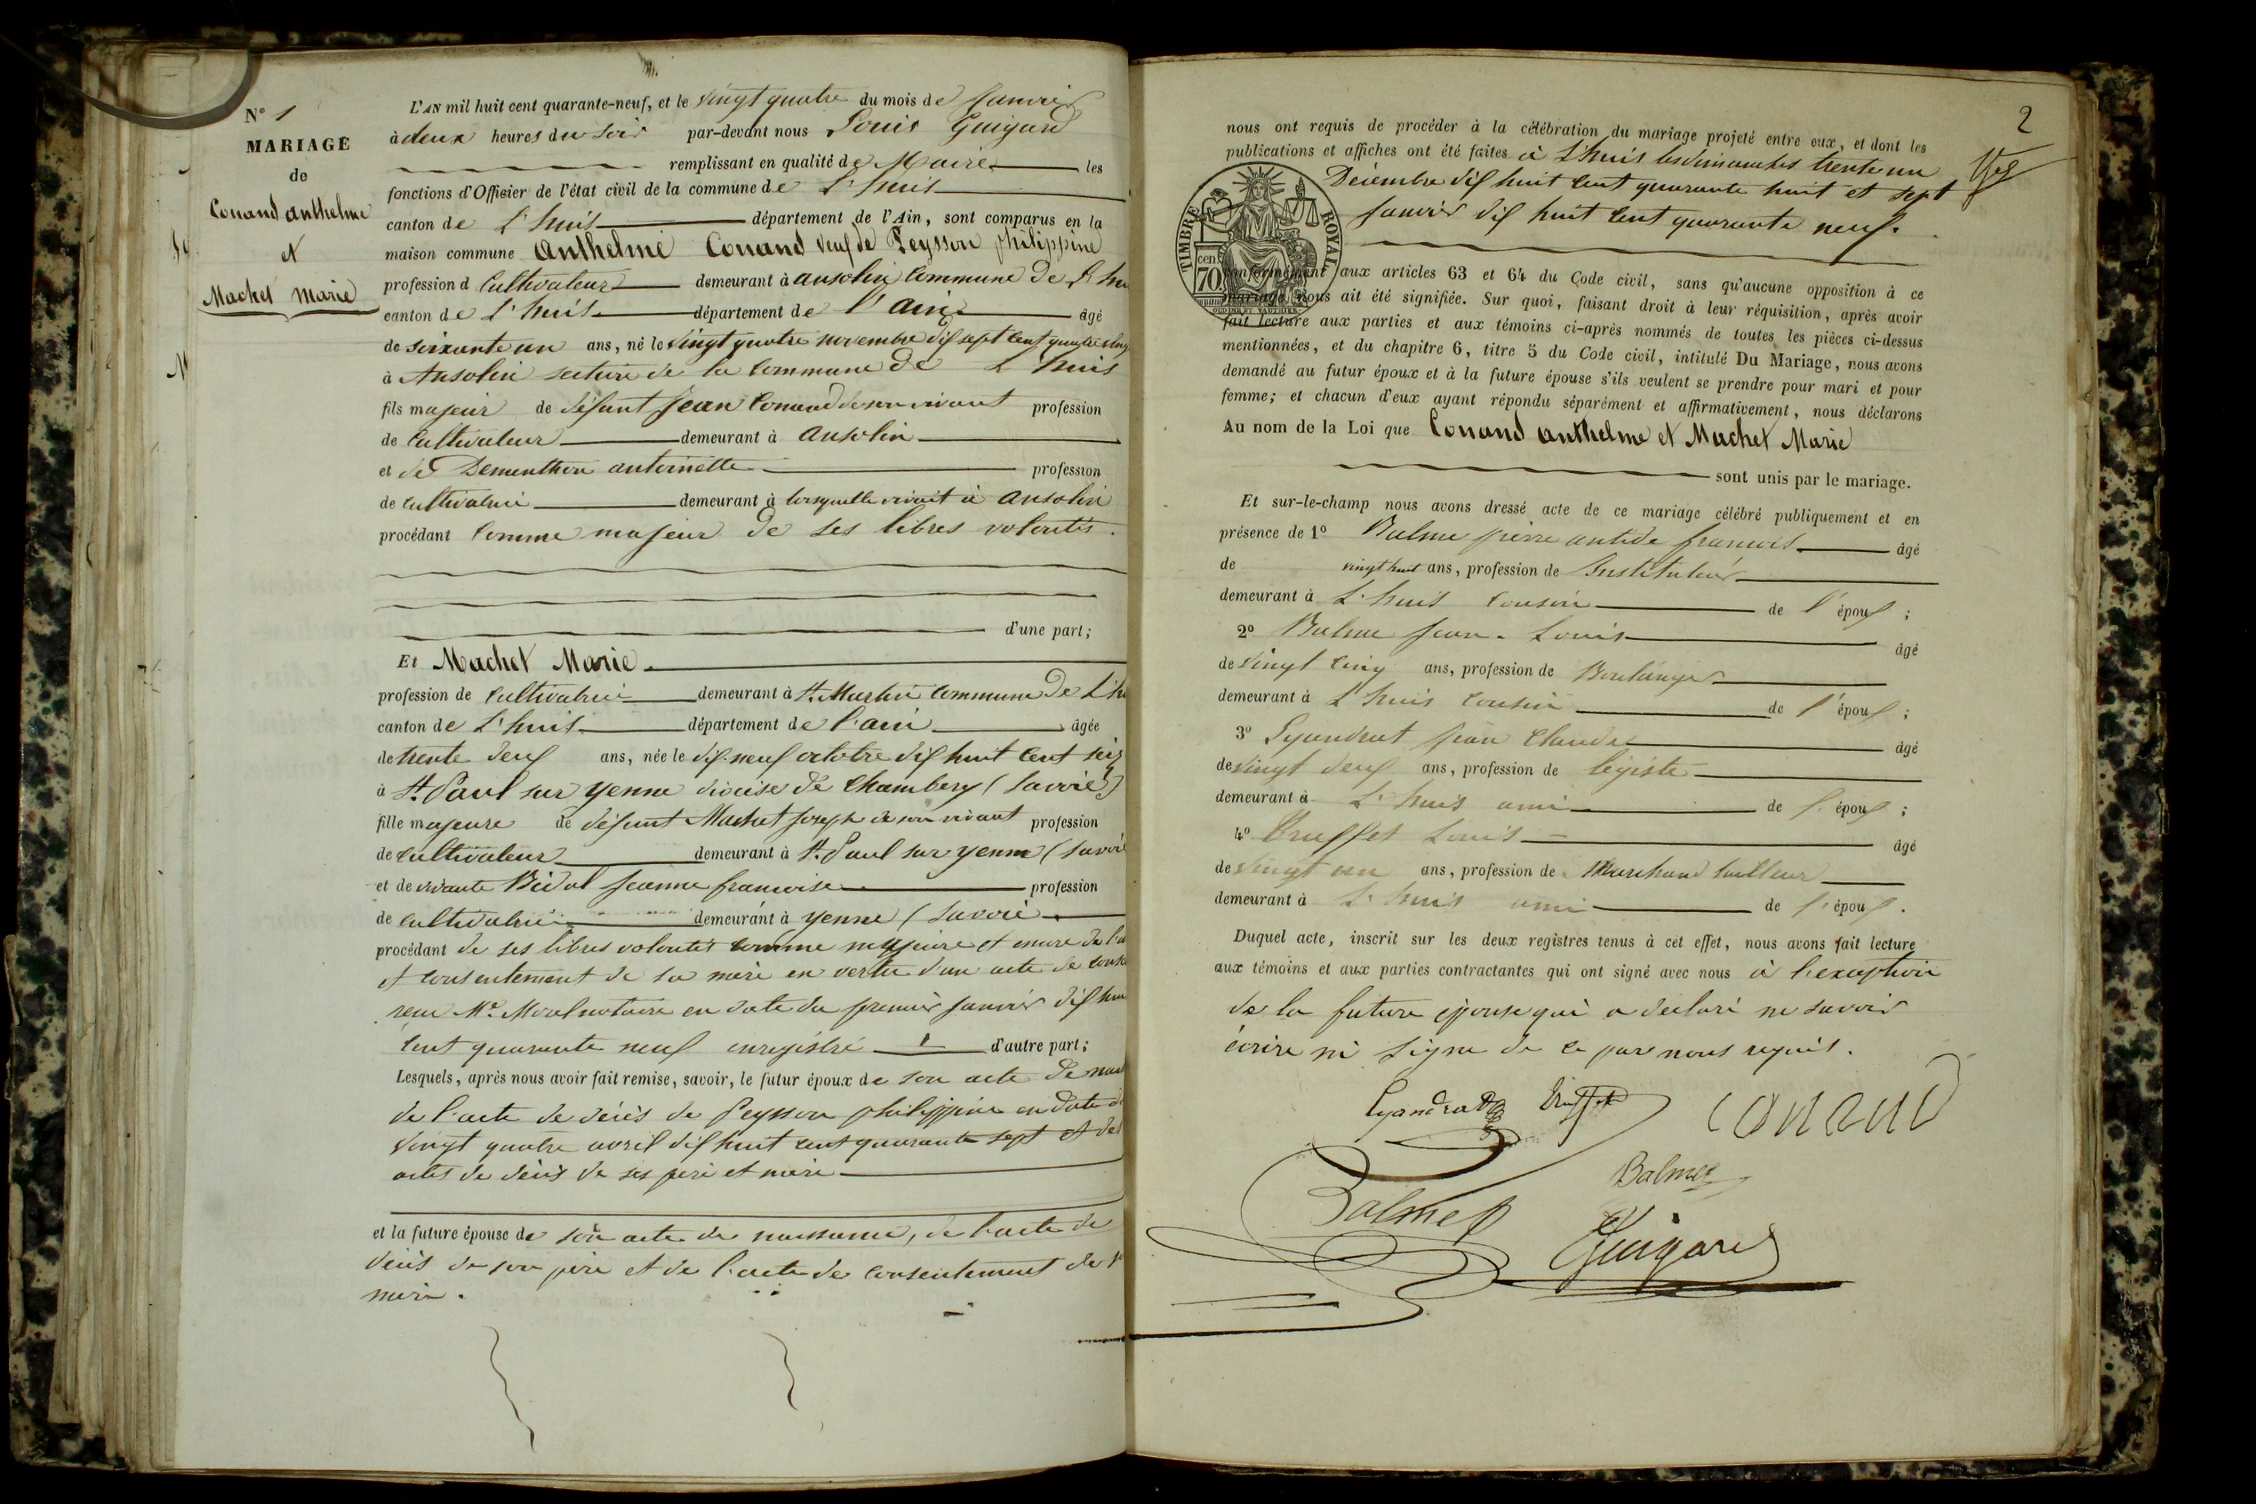 N° 1
MARIAGE
de
Conand anthelme
et
Machet marie
L'AN mil huit cent quarante-neuf, et le vingt quatre du mois de Janvier
à deux heures du soir par-devant nous Louis Guigard
remplissant en qualité de Maire les
fonctions d'Officier de l'état civil de la commune de L'huis
canton de L'huis département de l'Ain, sont comparus en la
maison commune Anthelme Conand veuf de Peysson philippine
profession d Cultivateur demeurant à ansolin Commune de L'hu
canton de L'huis département de l'ain âgé
de soixante un ans, né le vingt quatre novembre dix sept cent quatre ving
à Ansolin section de la Commune de L'huis
fils majeur de défunt Jean Conand de son vivant profession
de Cultivateur demeurant à ansolin
et de Dementhon antoinette profession
de cultivatrice demeurant à lorsquelle vivait à ansolin
procédant Comme majeur de ses libres volontés.
d'une part;
Et Machet Marie
profession de Cultivatrice demeurant à St. Martin Commune de L'hu
canton de L'huis département de l'ain âgée
de trente deux ans, née le dix-neuf octobre dix huit cent seiz
à St. Paul sur yenne diocèse de Chambery (Savoie)
fille majeure de défunt Machet Joseph de son vivant profession
de cultivateur demeurant à St. Paul sur yenne (Savoi
et de vivante Bidal Jeanne françoise profession
de cultivatrice demeurant à yenne (Savoie
procédant de ses libres volontés comme majeure et encore de l'a
et consentement de sa mère en vertu d'un acte de conse
reçu Me. Morel notaire en date du premier Janvier dix hui
Cent quarante neuf enregistré d'autre part;
Lesquels, après nous avoir fait remise, savoir, le futur époux de son acte de nais
de l'acte de décès de Peysson philippine en date d
vingt quatre avril dix huit cent quarante sept et des
actes de décès de ses père et mère
et la future épouse de son acte de naissance, de l'acte de
décès de son père et de l'acte de consentement de s
mère.
2
nous ont requis de procéder à la célébration du mariage projeté entre eux, et dont les
publications et affiches ont été faites à L'huis les dimanches trente un
Décembre dix huit cent quarante huit et sept
Janvier dix huit cent quarante neuf.
TIMBRE ROYAL
70 cen
conformément aux articles 63 et 64 du Code civil, sans qu'aucune opposition à ce
mariage nous ait été signifiée. Sur quoi, faisant droit à leur réquisition, après avoir
fait lecture aux parties et aux témoins ci-après nommés de toutes les pièces ci-dessus
mentionnées, et du chapitre 6, titre 5 du Code civil, intitulé Du Mariage, nous avons
demandé au futur époux et à la future épouse s'ils veulent se prendre pour mari et pour
femme; et chacun d'eux ayant répondu séparément et affirmativement, nous déclarons
Au nom de la Loi que Conand anthelme et Machet Marie
sont unis par le mariage.
Et sur-le-champ nous avons dressé acte de ce mariage célébré publiquement et en
présence de 1° Balme pierre antide françois âgé
de vingt huit ans, profession de Instituteur
demeurant à L'huis cousin de l'époux;
2° Balme Jean-Louis âgé
de vingt cinq ans, profession de Boulanger
demeurant à L'huis cousin de l'époux;
3° Lyandrat Jean Claude âgé
de vingt deux ans, profession de légiste
demeurant à L'huis ami de l'époux;
4° Truffet Louis âgé
de vingt un ans, profession de Marchand tailleur
demeurant à L'huis ami de l'époux.
Duquel acte, inscrit sur les deux registres tenus à cet effet, nous avons fait lecture
aux témoins et aux parties contractantes qui ont signé avec nous à l'exception
de la future épouse qui a déclaré ne savoir
écrire ni signer de ce par nous requis.
Lyandrat Truffet conand
Balme
Balme
Guigard